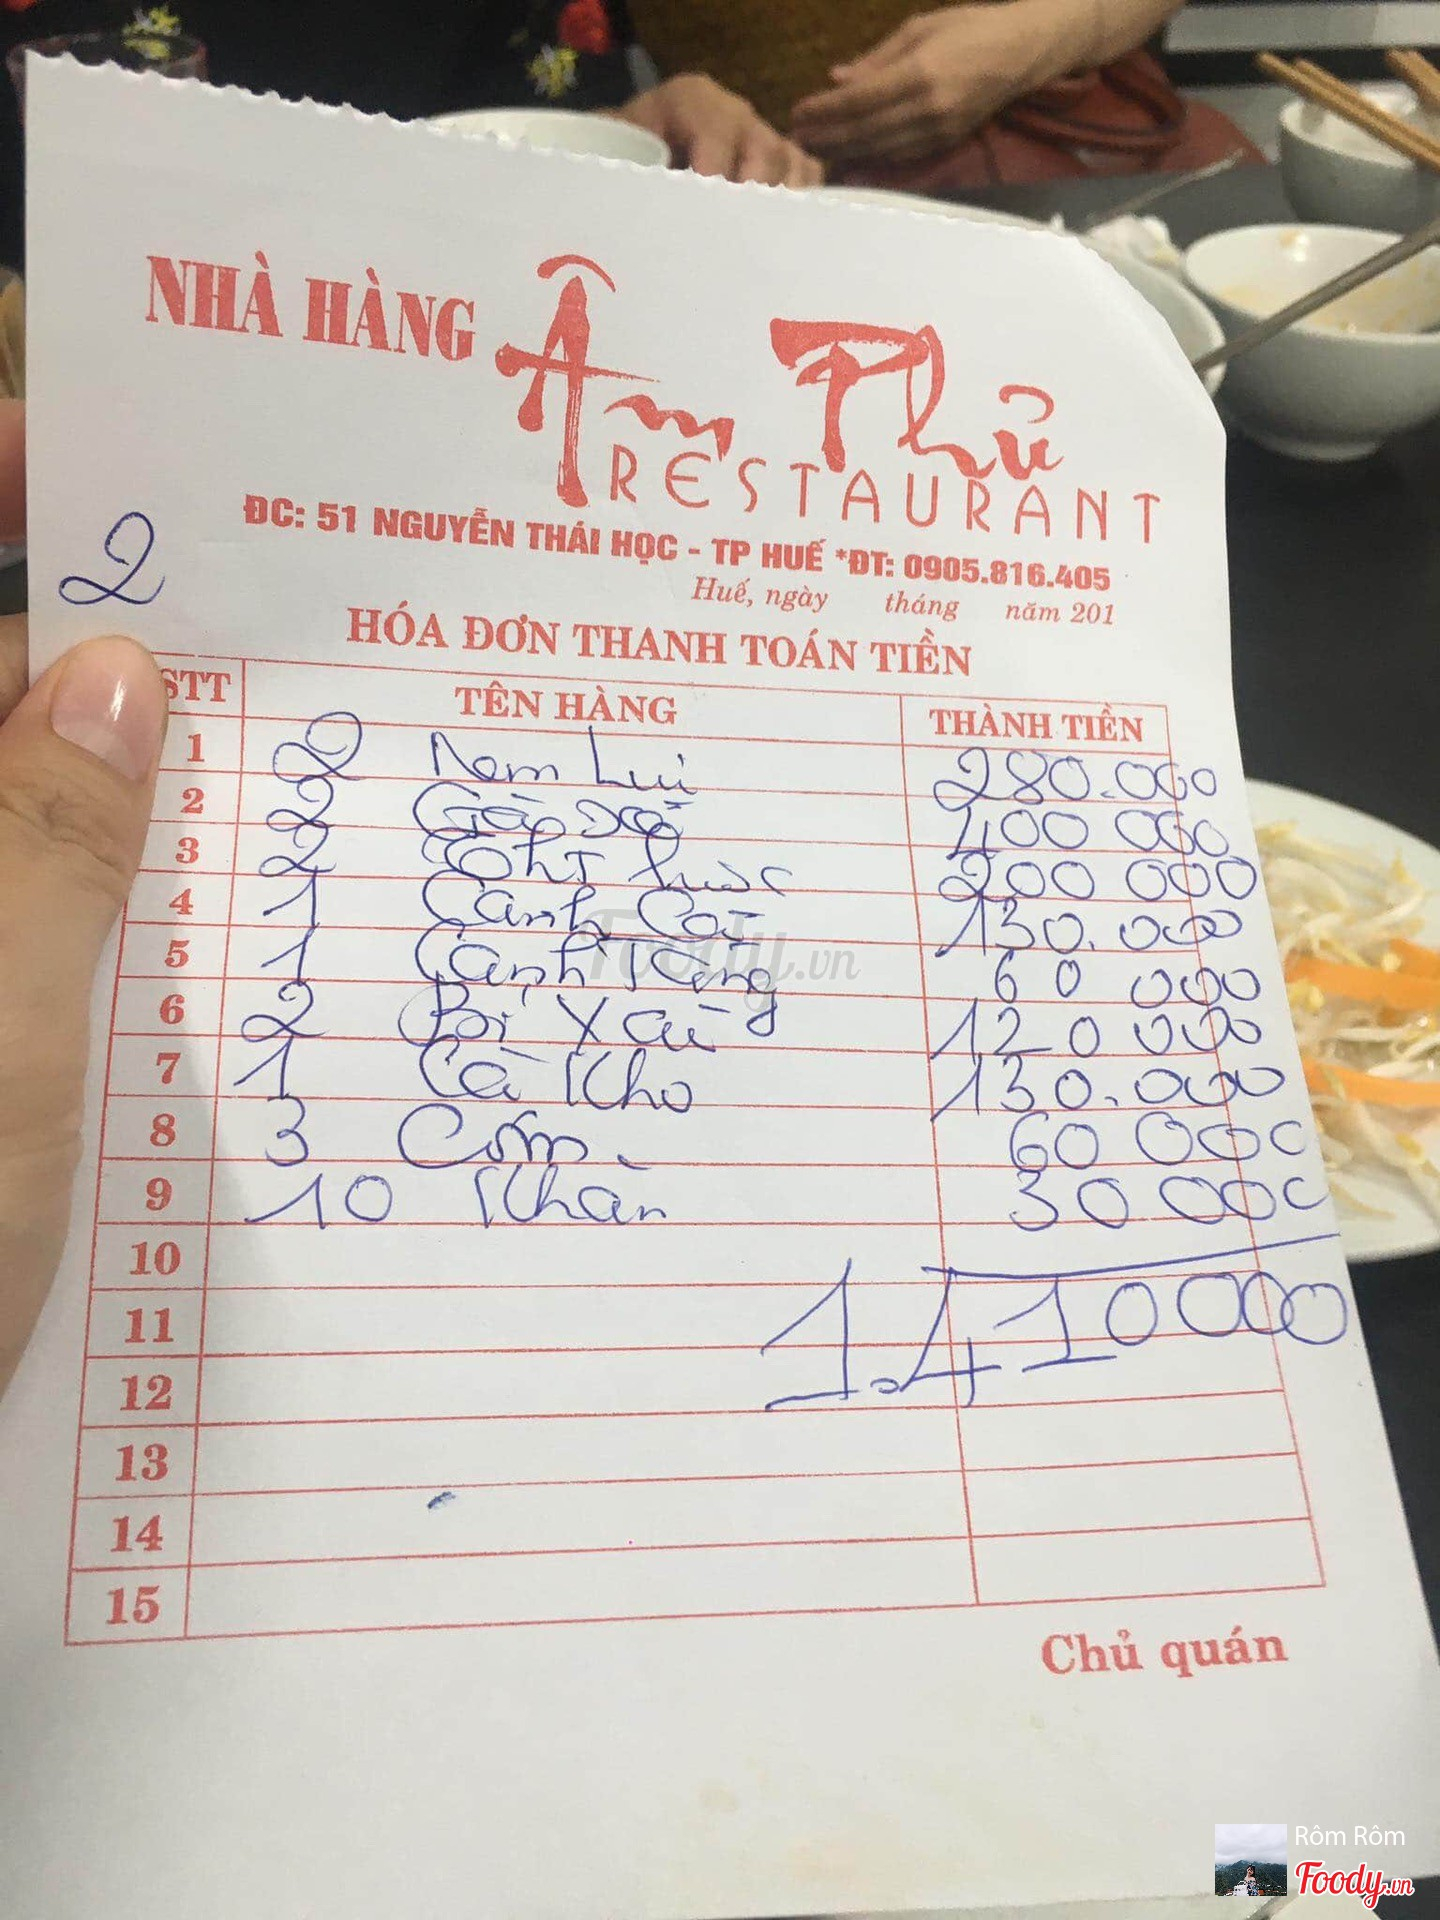 NHÀ HÀNG Âm Phủ
RESTAURANT
ĐC: 51 NGUYỄN THÁI HỌC - TP HUẾ *ĐT: 0905.816.405
Huế, ngày tháng năm 201
2
HÓA ĐƠN THANH TOÁN TIỀN
STT TÊN HÀNG THÀNH TIỀN
1 2 Nem Lụi 280.000
2 2 Gà 400 000
3 2 200 000
4 1 Canh 130.000
5 1 Canh 60 000
6 2 Xào 120 000
7 1 Cá Kho 130.000
8 3 Cơm 60 000
9 10 Khăn 30 000
10
11 1.410000
12
13
14
15
Chủ quán
Foody.vn
Rôm Rôm
Foody.vn